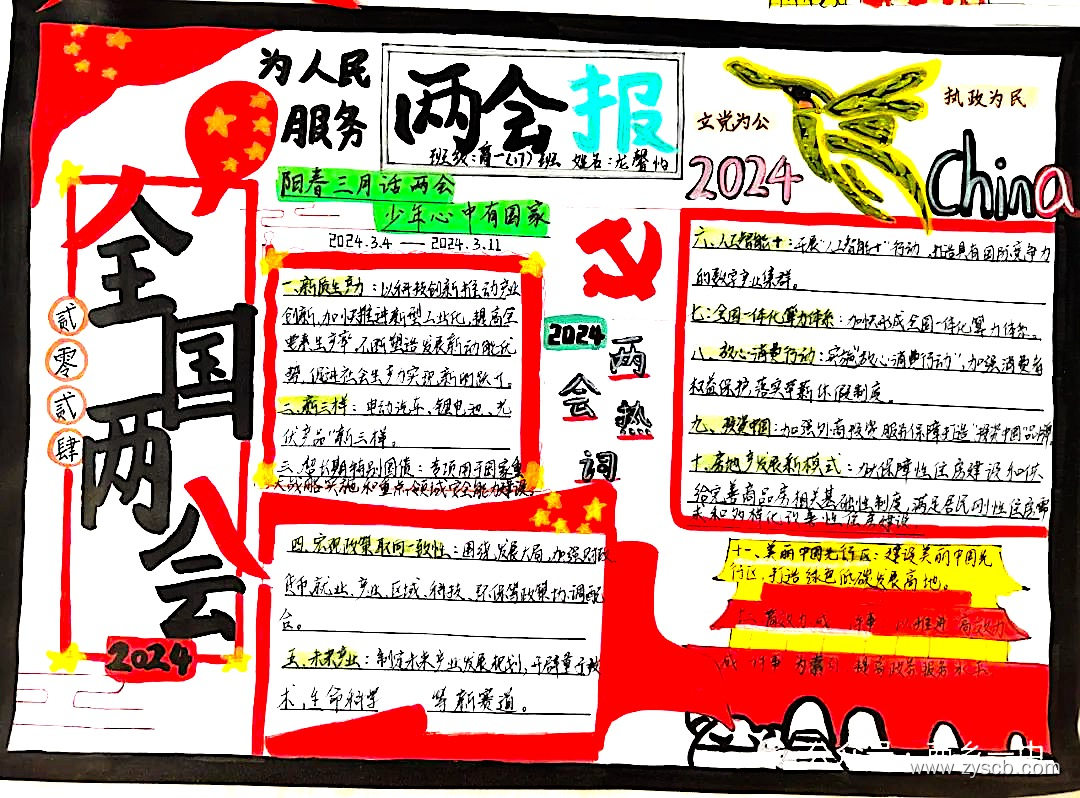 为人民
服务
两会报
班级:高一(17)班 姓名:龙馨怡
立党为公
执政为民
2024
China
阳春三月话两会
少年心中有国家
2024.3.4 — 2024.3.11
全国两会
贰零贰肆
2024
2024
两会热词
一、新质生产力:以科技创新推动产业
创新,加快推进新型工业化,提高全
要素生产率,不断塑造发展新动能优
势,促进社会生产力实现新的跃升。
二、新三样:电动汽车、锂电池、光
伏产品"新三样。
三、超长期特别国债:专项用于国家重
大战略实施和重点领域安全能力建设。
四、宏观政策取向一致性:围绕发展大局,加强财政
货币就业、产业、区域、科技、环保等政策协调配
合。
五、未来产业:制定未来产业发展规划,开辟量子技
术,生命科学 等新赛道。
六、人工智能+:开展"人工智能+"行动,打造具有国际竞争力
的数字产业集群。
七:全国一体化算力体系:加快形成全国一体化算力体系。
八、放心消费行动:实施"放心消费行动",加强消费者
权益保护,落实带薪休假制度。
九、投资中国:加强外商投资服务保障打造"投资中国品牌
十、房地产发展新模式:加保障性住房建设和供
给完善商品房相关基础性制度,满足居民刚性住房需
求和多样化改善性住房
十一、美丽中国先行区:建设美丽中国先
行区,打造绿色低碳发展高地。
高效办成 件事 推进"高效办
成 件事 为牵引 提高政务服务水平
www.zyscb.com